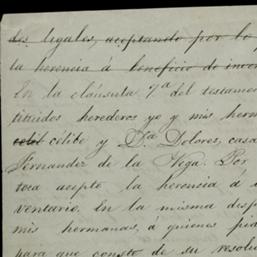 des legales, aceptando por lo p
la herencia á beneficio de inven
En la cláusula 7ª del testamen
tituidos herederos yo y mis herm
célibe y Dª Dolores, casa
Fernandez de la Vega Por
toca acepto la herencia á
ventario. En la misma desp
mis hermanas, á quienes pid
para que conste de su resolu